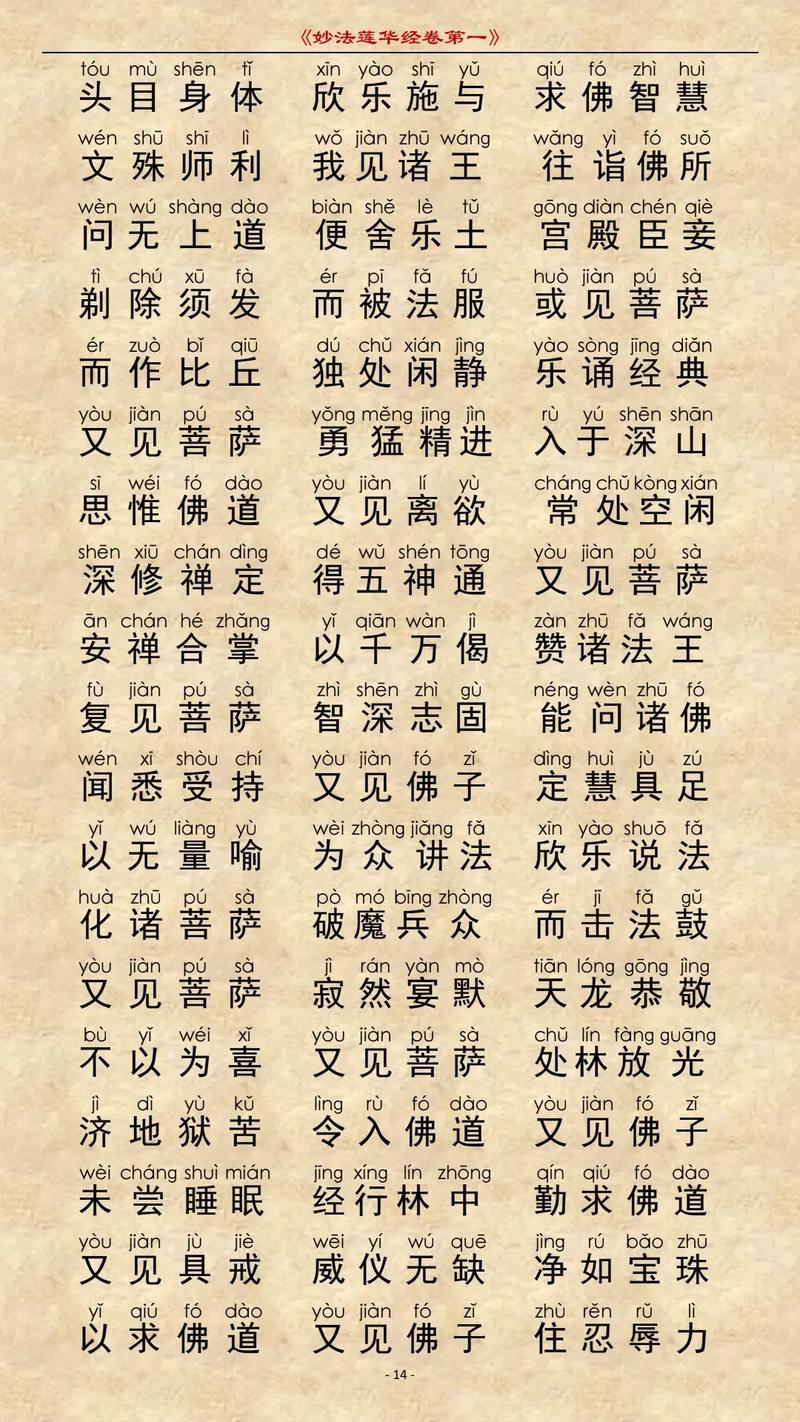 《妙法莲华经卷第一》
tóu mù shēn tǐ xīn yào shī yǔ qiú fó zhì huì
头目身体 欣乐施与 求佛智慧
wén shū shī lì wǒ jiàn zhū wáng wǎng yì fó suǒ
文殊师利 我见诸王 往诣佛所
wèn wú shàng dào biàn shě lè tǔ gōng diàn chén qiè
问无上道 便舍乐土 宫殿臣妾
tì chú xū fà ér pī fǎ fú huò jiàn pú sà
剃除须发 而被法服 或见菩萨
ér zuò bǐ qiū dú chǔ xián jìng yào sòng jīng diǎn
而作比丘 独处闲静 乐诵经典
yòu jiàn pú sà yǒng měng jīng jìn rù yú shēn shān
又见菩萨 勇猛精进 入于深山
sī wéi fó dào yòu jiàn lí yù cháng chǔ kòng xián
思惟佛道 又见离欲 常处空闲
shēn xiū chán dìng dé wǔ shén tōng yòu jiàn pú sà
深修禅定 得五神通 又见菩萨
ān chán hé zhǎng yǐ qiān wàn jì zàn zhū fǎ wáng
安禅合掌 以千万偈 赞诸法王
fù jiàn pú sà zhì shēn zhì gù néng wèn zhū fó
复见菩萨 智深志固 能问诸佛
wén xī shòu chí yòu jiàn fó zǐ dìng huì jù zú
闻悉受持 又见佛子 定慧具足
yǐ wú liàng yù wèi zhòng jiǎng fǎ xīn yào shuō fǎ
以无量喻 为众讲法 欣乐说法
huà zhū pú sà pò mó bīng zhòng ér jī fǎ gǔ
化诸菩萨 破魔兵众 而击法鼓
yòu jiàn pú sà jì rán yàn mò tiān lóng gōng jìng
又见菩萨 寂然宴默 天龙恭敬
bù yǐ wéi xǐ yòu jiàn pú sà chǔ lín fàng guāng
不以为喜 又见菩萨 处林放光
jì dì yù kǔ lìng rù fó dào yòu jiàn fó zǐ
济地狱苦 令入佛道 又见佛子
wèi cháng shuì mián jīng xíng lín zhōng qín qiú fó dào
未尝睡眠 经行林中 勤求佛道
yòu jiàn jù jiè wēi yí wú quē jìng rú bǎo zhū
又见具戒 威仪无缺 净如宝珠
yǐ qiú fó dào yòu jiàn fó zǐ zhù rěn rǔ lì
以求佛道 又见佛子 住忍辱力
- 14 -